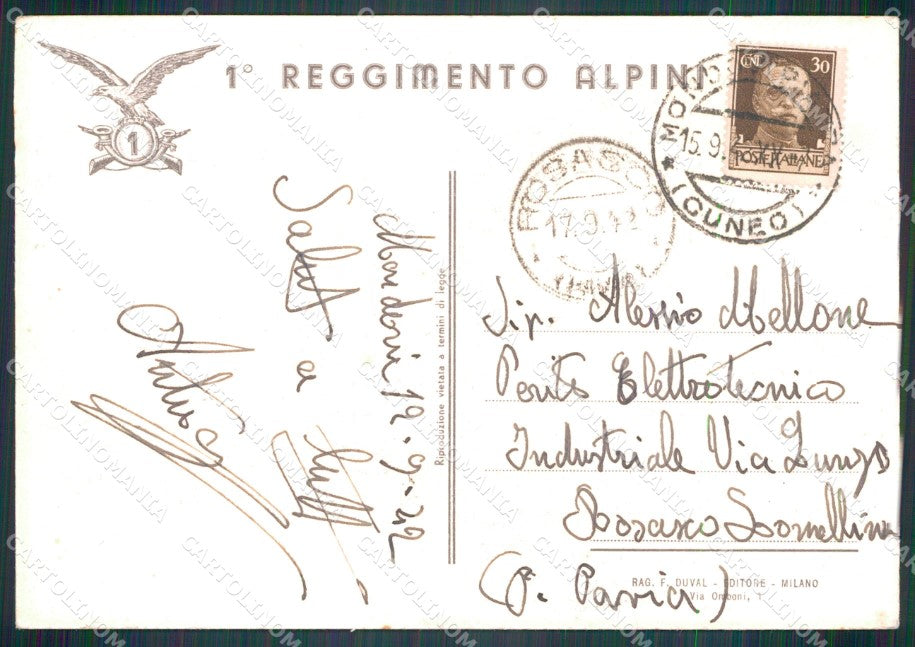 1° REGGIMENTO ALPINI
1
CENT. 30
POSTE ITALIANE
MONDOVI
15.9.
(CUNEO)
ROSASCO
17.9.42
Mondovì 12-9-42
Saluti a tutti
Sig. Alessio Mellone
Perito Elettrotecnico
Industriale Via Lungo
Rosasco Lomellina
(P. Pavia)
Riproduzione vietata a termini di legge
RAG. F. DUVAL - EDITORE - MILANO
Via Omboni, 1
CARTOLINOMANIA